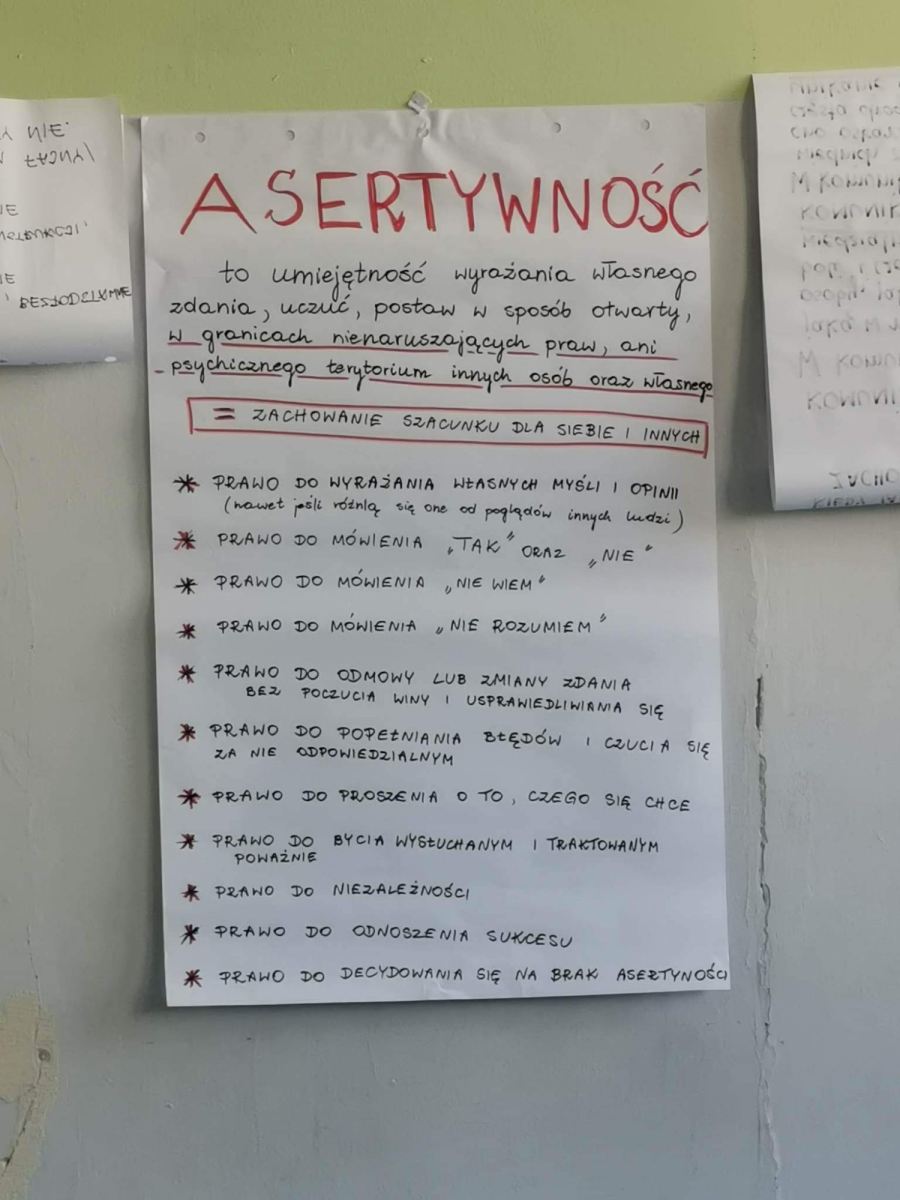 ASERTYWNOŚĆ
to umiejętność wyrażania własnego
zdania, uczuć, postaw w sposób otwarty,
w granicach nienaruszających praw, ani
psychicznego terytorium innych osób oraz własnego
= ZACHOWANIE SZACUNKU DLA SIEBIE I INNYCH
* PRAWO DO WYRAŻANIA WŁASNYCH MYŚLI I OPINII
(nawet jeśli różnią się one od poglądów innych ludzi)
* PRAWO DO MÓWIENIA „TAK” ORAZ „NIE”
* PRAWO DO MÓWIENIA „NIE WIEM”
* PRAWO DO MÓWIENIA „NIE ROZUMIEM”
* PRAWO DO ODMOWY LUB ZMIANY ZDANIA
BEZ POCZUCIA WINY I USPRAWIEDLIWIANIA SIĘ
* PRAWO DO POPEŁNIANIA BŁĘDÓW I CZUCIA SIĘ
ZA NIE ODPOWIEDZIALNYM
* PRAWO DO PROSZENIA O TO, CZEGO SIĘ CHCE
* PRAWO DO BYCIA WYSŁUCHANYM I TRAKTOWANYM
POWAŻNIE
* PRAWO DO NIEZALEŻNOŚCI
* PRAWO DO ODNOSZENIA SUKCESU
* PRAWO DO DECYDOWANIA SIĘ NA BRAK ASERTYNOŚCI